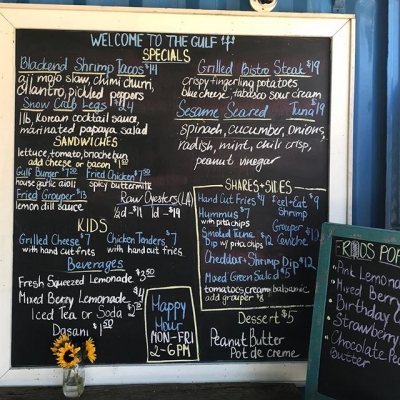 WELCOME TO THE GULF
SPECIALS
Blackend Shrimp Tacos $14
aji mojo slaw, chimi churri,
cilantro, pickled peppers
Snow Crab Legs $24
1 lb, Korean cocktail sauce,
marinated papaya salad
SANDWICHES
lettuce, tomato, brioche bun
add cheese or bacon $1.50
Gulf Burger $7.50 Fried Chicken $7.50
house garlic aioli spicy buttermilk
Fried Grouper $13
lemon dill sauce
Raw Oysters (LA)
½d - $11 1d - $19
KIDS
Grilled Cheese $7 Chicken Tenders $7
with hand cut fries with hand cut fries
Beverages
Fresh Squeezed Lemonade $3.50
Mixed Berry Lemonade $4
Iced Tea or Soda $2
Dasani $1.50
Happy
Hour
MON-FRI
2-6PM
Grilled Bistro Steak $19
crispy fingerling potatoes
blue cheese, tabasco sour cream
Sesame Seared Tuna $19
spinach, cucumber, onions,
radish, mint, chili crisp,
peanut vinegar
SHARES + SIDES
Hand Cut Fries $4
Hummus $7
with pita chips
Smoked Tuna $12
Dip w/ pita chips
Peel + Eat $9
Shrimp
Grouper
Ceviche
Cheddar + Shrimp Dip $12
Mixed Green Salad $5
tomatoes, cream balsamic
add grouper $8
Dessert $5
Peanut Butter
Pot de creme
FROIDS POP
Pink Lemona
Mixed Berry
Birthday
Strawberry
Chocolate Pea
Butter